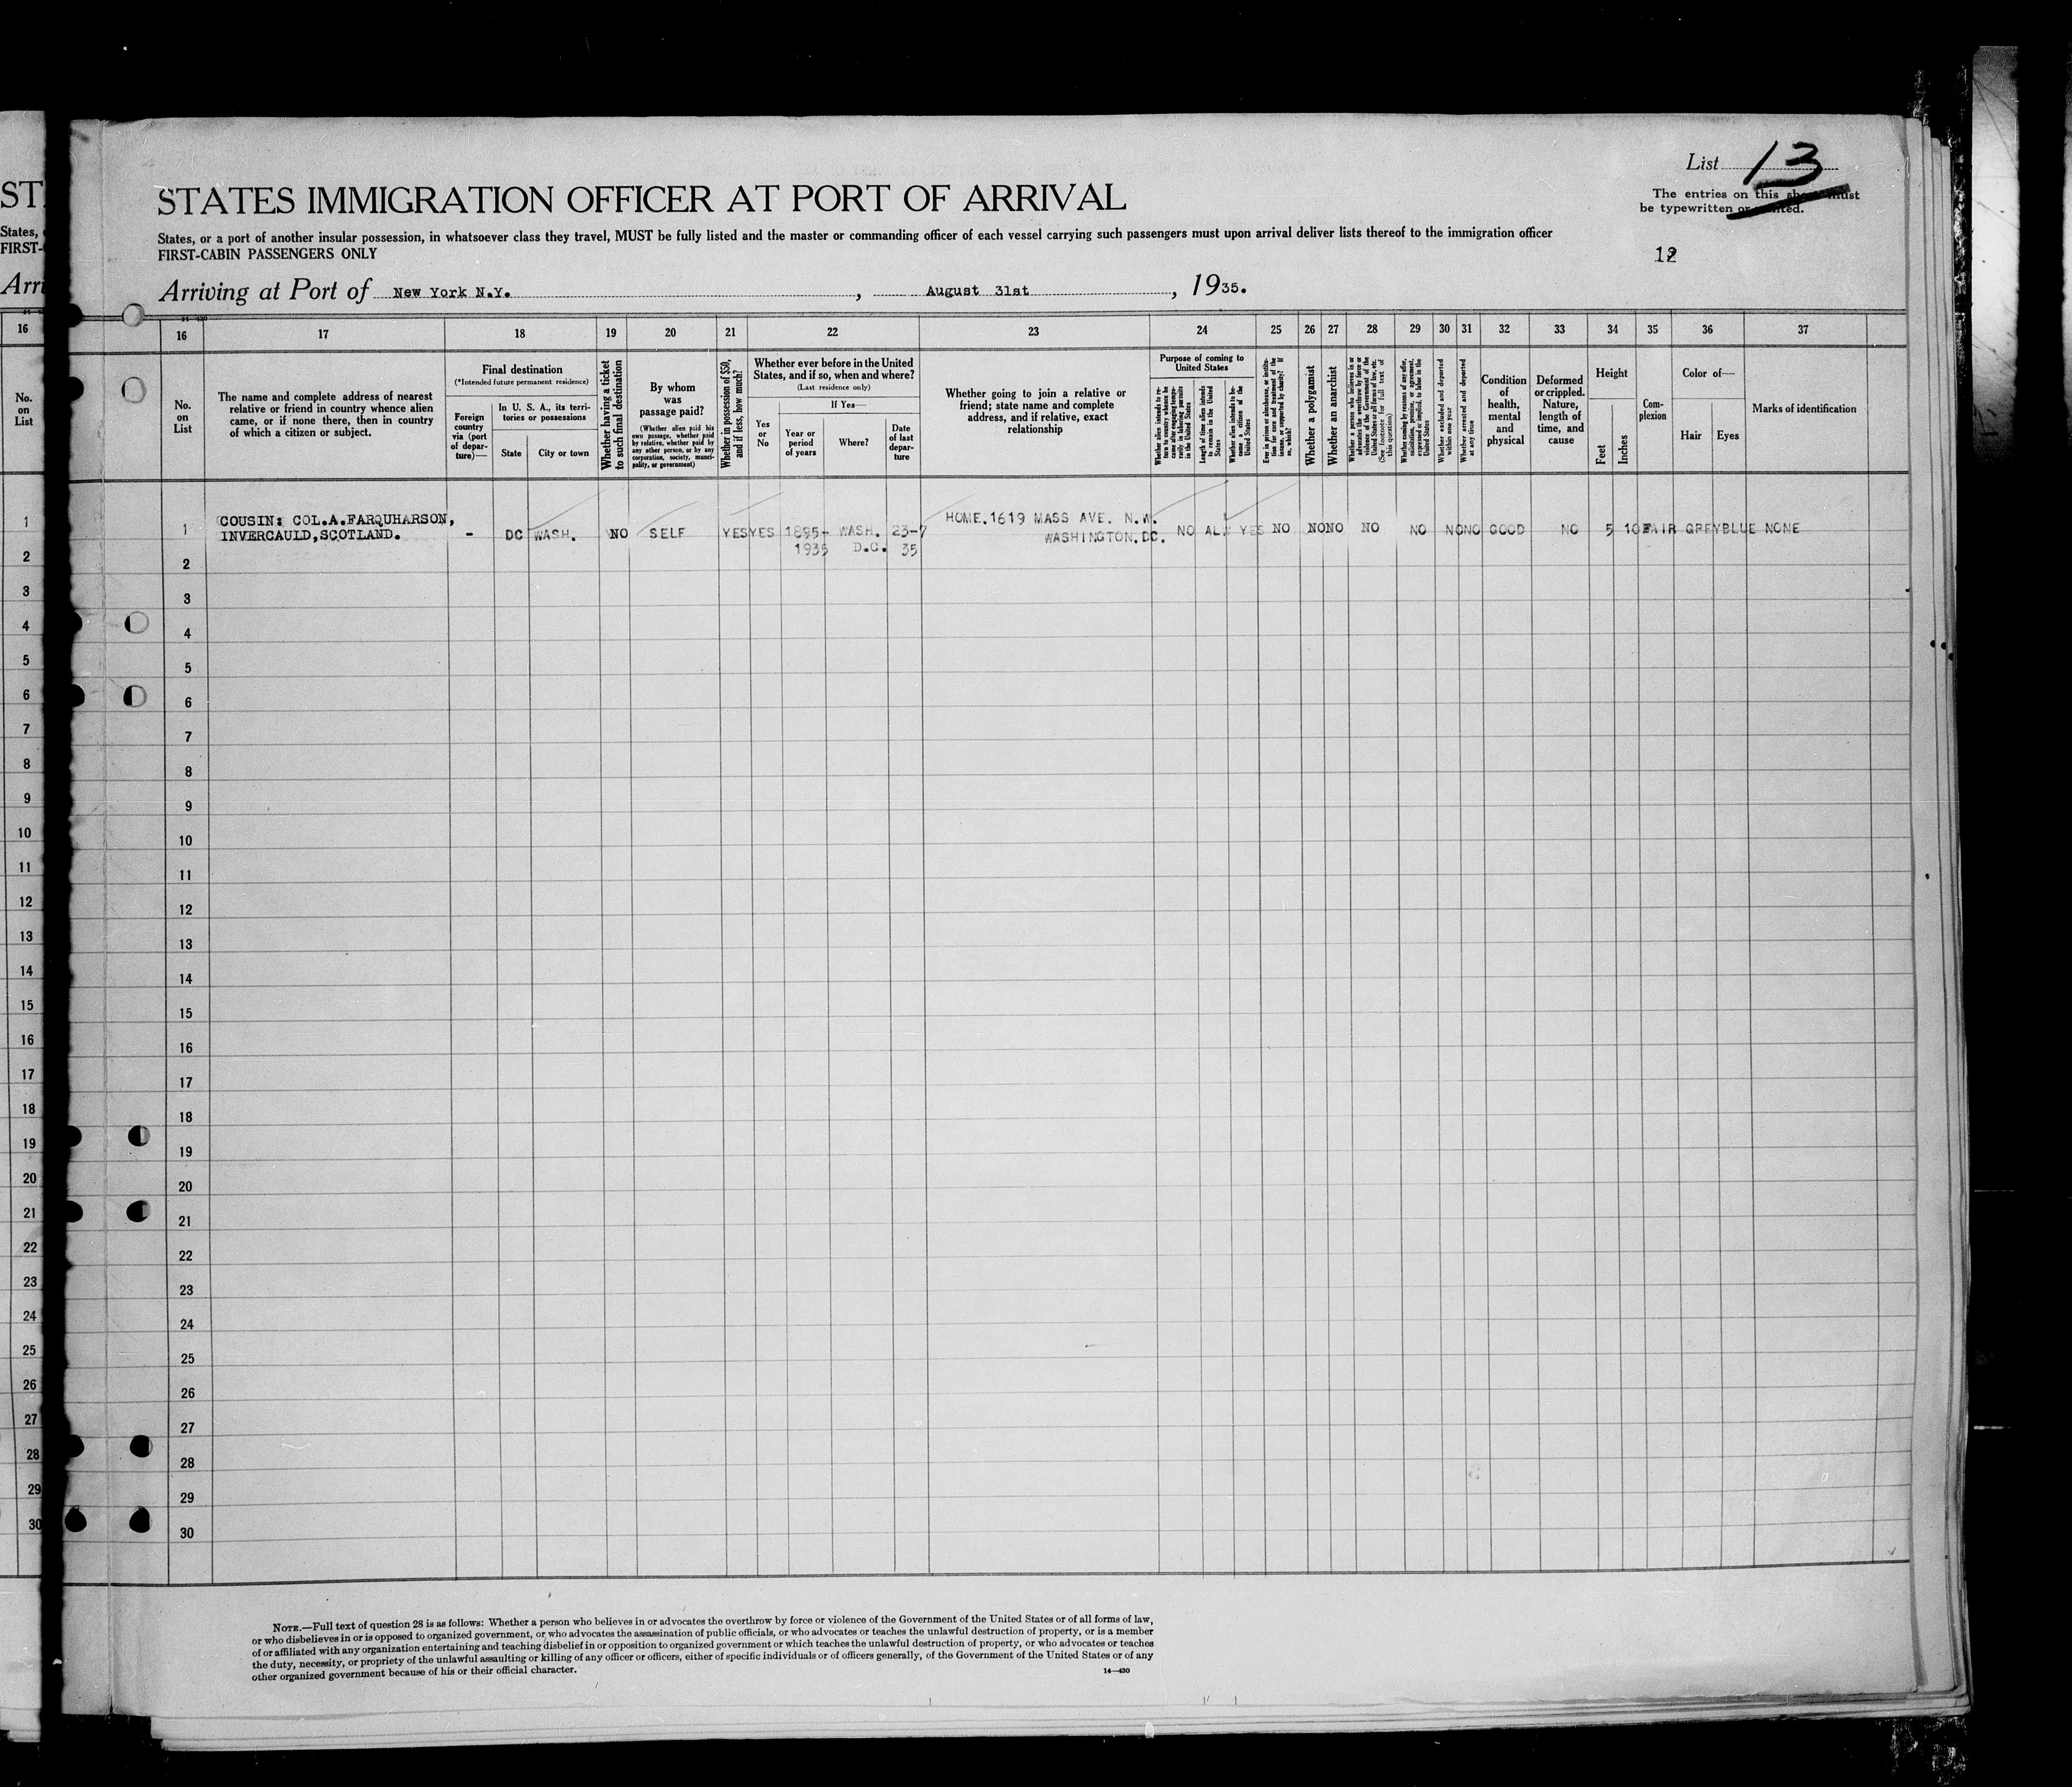 List 13
The entries on this sheet must
be typewritten or printed.
12
STATES IMMIGRATION OFFICER AT PORT OF ARRIVAL
States, or a port of another insular possession, in whatsoever class they travel, MUST be fully listed and the master or commanding officer of each vessel carrying such passengers must upon arrival deliver lists thereof to the immigration officer
FIRST-CABIN PASSENGERS ONLY
Arriving at Port of New York N.Y., August 31st, 1935.
16 17 18 19 20 21 22 23 24 25 26 27 28 29 30 31 32 33 34 35 36 37
No. on List
The name and complete address of nearest
relative or friend in country whence alien
came, or if none there, then in country
of which a citizen or subject.
Final destination
(*Intended future permanent residence)
Foreign country via (port of departure)—
In U. S. A., its territories or possessions
State
City or town
Whether having a ticket
to such final destination
By whom
was
passage paid?
(Whether alien paid his
own passage, whether paid
by relative, whether paid by
any other person, or by any
corporation, society, munici-
pality, or government)
Whether in possession of $50,
and if less, how much?
Whether ever before in the United
States, and if so, when and where?
(Last residence only)
Yes or No
If Yes—
Year or period of years
Where?
Date of last departure
Whether going to join a relative or
friend; state name and complete
address, and if relative, exact
relationship
Purpose of coming to
United States
Whether alien intends to return to country whence he came after engaging temporarily in laboring pursuits in the United States
Length of time alien intends to remain in the United States
Whether alien intends to become a citizen of the United States
Ever in prison or almshouse, or institution for care and treatment of the insane, or supported by charity? If so, which?
Whether a polygamist
Whether an anarchist
Whether a person who believes in or advocates the overthrow by force or violence of the Government of the United States or all forms of law, etc. (See footnote for full text of this question)
Whether coming by reasons of any offer, solicitation, promise, or agreement, expressed or implied, to labor in the United States
Whether excluded and deported within one year
Whether arrested and deported at any time
Condition of health, mental and physical
Deformed or crippled. Nature, length of time, and cause
Height
Feet
Inches
Complexion
Color of—
Hair
Eyes
Marks of identification
1 COUSIN: COL.A.FARQUHARSON,
INVERCAULD,SCOTLAND.
- DC WASH. NO SELF YES YES 1895- WASH. 23-7
1935 D.C. 35
HOME.1619 MASS AVE. N.W.
WASHINGTON,DC.
NO ALW YES NO NO NO NO NO NO NO GOOD NO 5 10 FAIR GREY BLUE NONE
2
3
4
5
6
7
8
9
10
11
12
13
14
15
16
17
18
19
20
21
22
23
24
25
26
27
28
29
30
NOTE.—Full text of question 28 is as follows: Whether a person who believes in or advocates the overthrow by force or violence of the Government of the United States or of all forms of law,
or who disbelieves in or is opposed to organized government, or who advocates the assassination of public officials, or who advocates or teaches the unlawful destruction of property, or is a member
of or affiliated with any organization entertaining and teaching disbelief in or opposition to organized government or which teaches the unlawful destruction of property, or who advocates or teaches
the duty, necessity, or propriety of the unlawful assaulting or killing of any officer or officers, either of specific individuals or of officers generally, of the Government of the United States or of any
other organized government because of his or their official character.
14—430